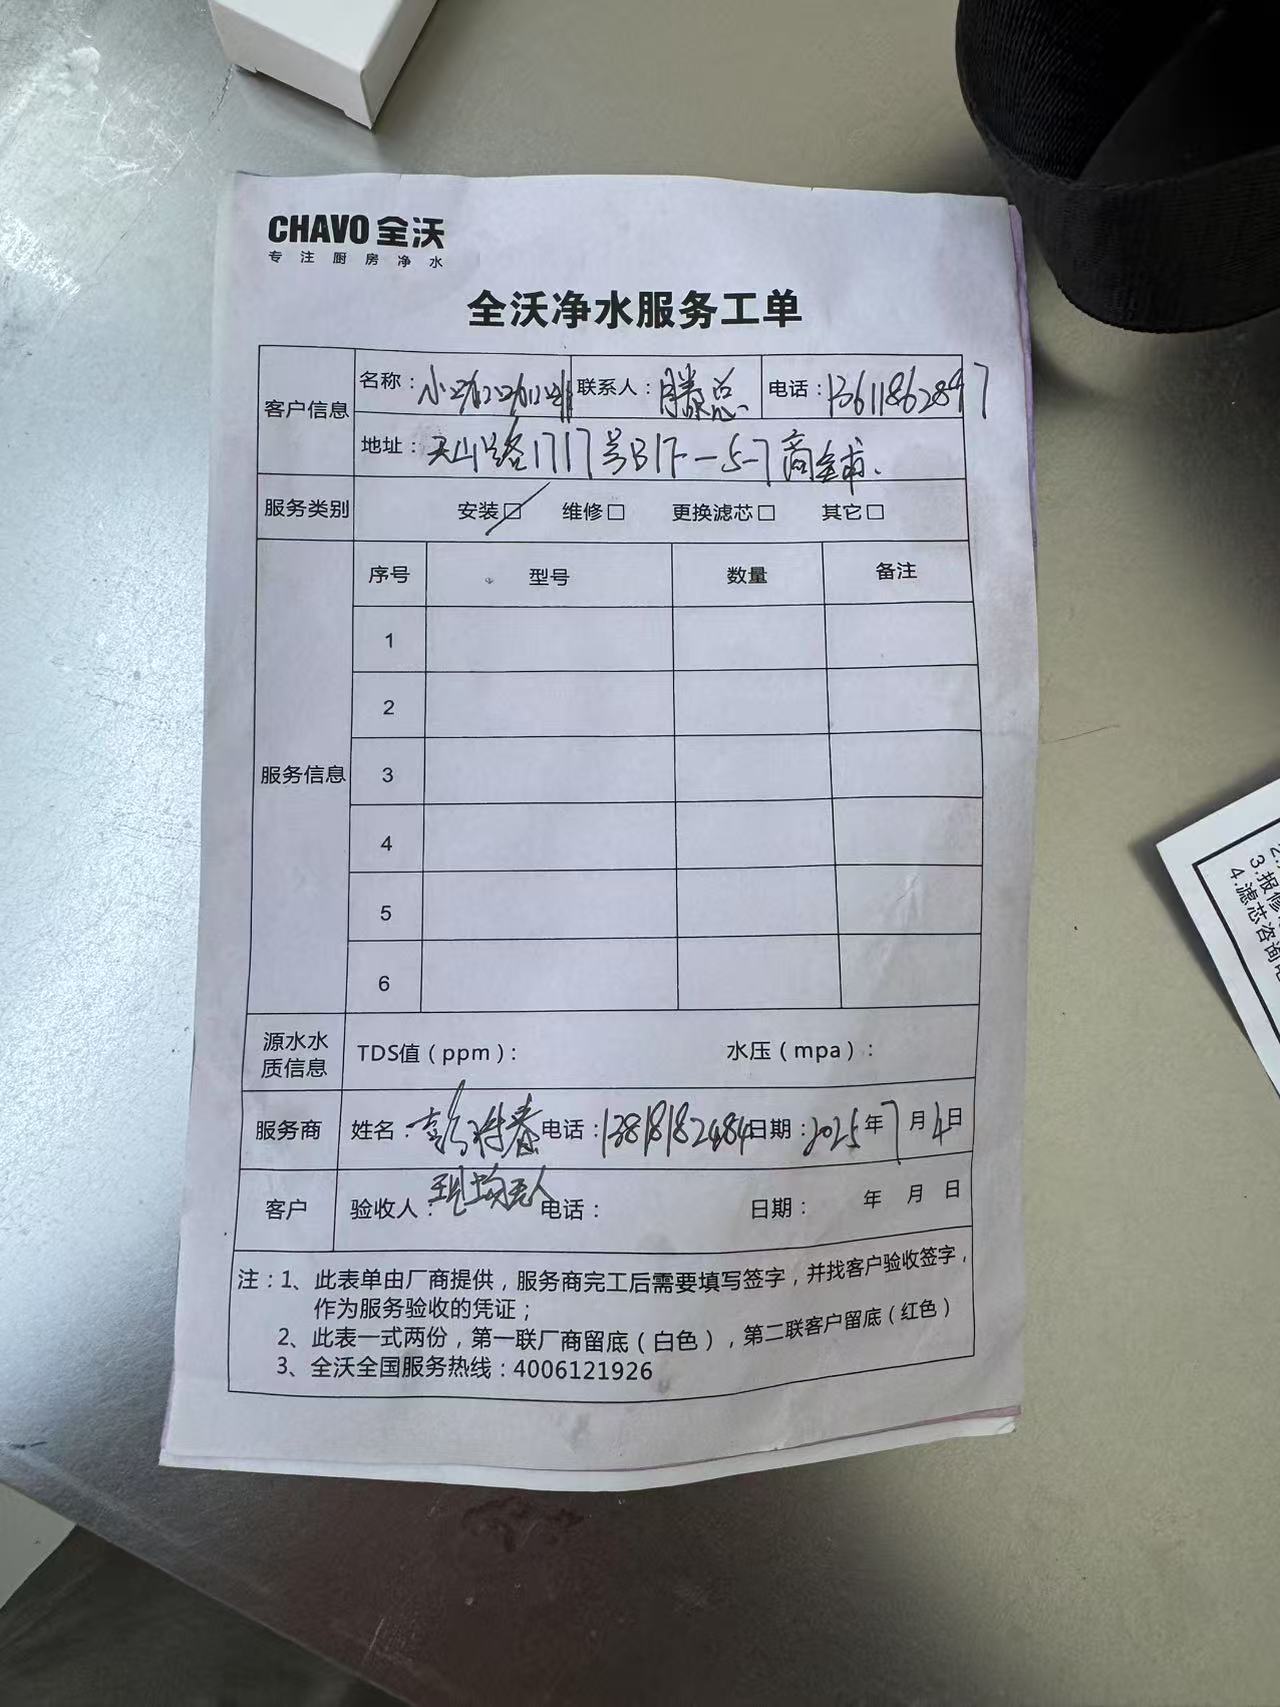 CHAVO 全沃
专注厨房净水
全沃净水服务工单
客户信息 名称： 联系人：滕总 电话：13611862897
地址：天山路1717号B1F-5-7商铺.
服务类别 安装□ 维修□ 更换滤芯□ 其它□
服务信息 序号 型号 数量 备注
1
2
3
4
5
6
源水水质信息 TDS值（ppm）： 水压（mpa）：
服务商 姓名：彭 春 电话：13818182484 日期：2025年7月4日
客户 验收人： 电话： 日期： 年 月 日
注：1、此表单由厂商提供，服务商完工后需要填写签字，并找客户验收签字，
作为服务验收的凭证；
2、此表一式两份，第一联厂商留底（白色），第二联客户留底（红色）
3、全沃全国服务热线：4006121926
3.报修
4.滤芯咨询